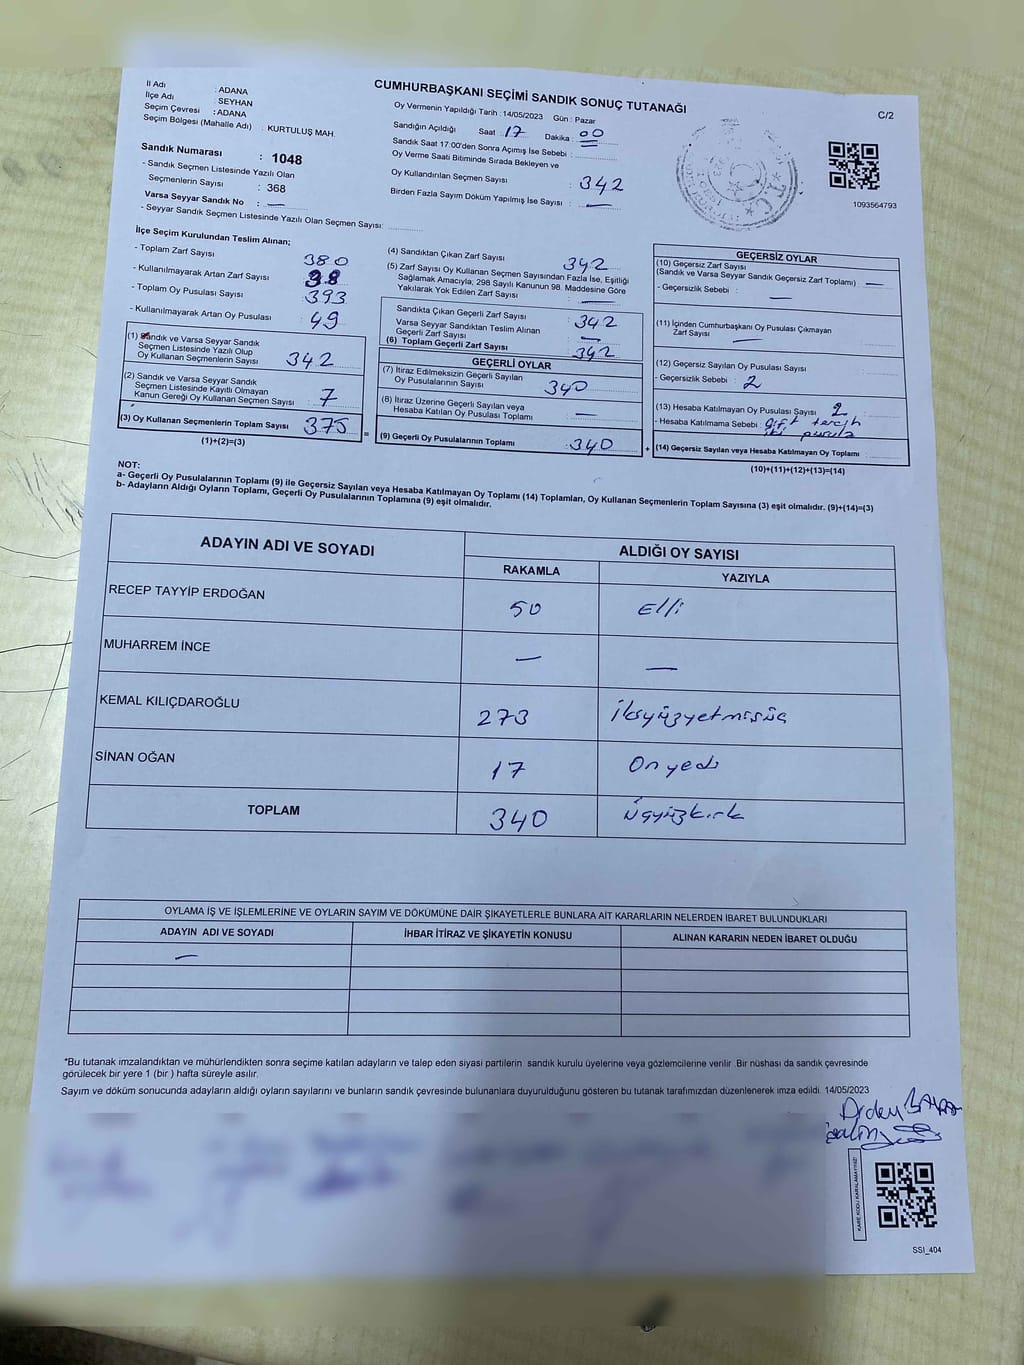 CUMHURBAŞKANI SEÇİMİ SANDIK SONUÇ TUTANAĞI
C/2
İl Adı : ADANA
İlçe Adı : SEYHAN
Seçim Çevresi : ADANA
Seçim Bölgesi (Mahalle Adı) : KURTULUŞ MAH.
Sandık Numarası : 1048
- Sandık Seçmen Listesinde Yazılı Olan
Seçmenlerin Sayısı : 368
Varsa Seyyar Sandık No : —
- Seyyar Sandık Seçmen Listesinde Yazılı Olan Seçmen Sayısı:
Oy Vermenin Yapıldığı Tarih : 14/05/2023 Gün : Pazar
Sandığın Açıldığı Saat : 17 Dakika : 00
Sandık Saat 17:00'den Sonra Açımış İse Sebebi :
Oy Verme Saati Bitiminde Sırada Bekleyen ve
Oy Kullandırılan Seçmen Sayısı : 342
Birden Fazla Sayım Döküm Yapılmış İse Sayısı : —
1093564793
İlçe Seçim Kurulundan Teslim Alınan;
- Toplam Zarf Sayısı 380
- Kullanılmayarak Artan Zarf Sayısı 38
- Toplam Oy Pusulası Sayısı 393
- Kullanılmayarak Artan Oy Pusulası 49
(1) Sandık ve Varsa Seyyar Sandık
Seçmen Listesinde Yazılı Olup
Oy Kullanan Seçmenlerin Sayısı 342
(2) Sandık ve Varsa Seyyar Sandık
Seçmen Listesinde Kayıtlı Olmayan
Kanun Gereği Oy Kullanan Seçmen Sayısı : 7
(3) Oy Kullanan Seçmenlerin Toplam Sayısı : 375
(1)+(2)=(3)
(4) Sandıktan Çıkan Zarf Sayısı 342
(5) Zarf Sayısı Oy Kullanan Seçmen Sayısından Fazla İse, Eşitliği
Sağlamak Amacıyla; 298 Sayılı Kanunun 98. Maddesine Göre
Yakılarak Yok Edilen Zarf Sayısı : —
Sandıkta Çıkan Geçerli Zarf Sayısı : 342
Varsa Seyyar Sandıktan Teslim Alınan
Geçerli Zarf Sayısı : —
(6) Toplam Geçerli Zarf Sayısı : 342
GEÇERLİ OYLAR
(7) İtiraz Edilmeksizin Geçerli Sayılan
Oy Pusulalarının Sayısı : 340
(8) İtiraz Üzerine Geçerli Sayılan veya
Hesaba Katılan Oy Pusulası Toplamı : —
=
(9) Geçerli Oy Pusulalarının Toplamı : 340
+
GEÇERSİZ OYLAR
(10) Geçersiz Zarf Sayısı
(Sandık ve Varsa Seyyar Sandık Geçersiz Zarf Toplamı) : —
- Geçersizlik Sebebi : —
(11) İçinden Cumhurbaşkanı Oy Pusulası Çıkmayan
Zarf Sayısı : —
(12) Geçersiz Sayılan Oy Pusulası Sayısı :
- Geçersizlik Sebebi : 2
(13) Hesaba Katılmayan Oy Pusulası Sayısı : 2
- Hesaba Katılmama Sebebi : çift tercih
iki pusula
(14) Geçersiz Sayılan veya Hesaba Katılmayan Oy Toplamı :
(10)+(11)+(12)+(13)=(14)
NOT:
a- Geçerli Oy Pusulalarının Toplamı (9) ile Geçersiz Sayılan veya Hesaba Katılmayan Oy Toplamı (14) Toplamları, Oy Kullanan Seçmenlerin Toplam Sayısına (3) eşit olmalıdır. (9)+(14)=(3)
b- Adayların Aldığı Oyların Toplamı, Geçerli Oy Pusulalarının Toplamına (9) eşit olmalıdır.
ADAYIN ADI VE SOYADI ALDIĞI OY SAYISI
RAKAMLA YAZIYLA
RECEP TAYYİP ERDOĞAN 50 Elli
MUHARREM İNCE — —
KEMAL KILIÇDAROĞLU 273 ikiyüzyetmişüç
SİNAN OĞAN 17 Onyedi
TOPLAM 340 üçyüzkırk
OYLAMA İŞ VE İŞLEMLERİNE VE OYLARIN SAYIM VE DÖKÜMÜNE DAİR ŞİKAYETLERLE BUNLARA AİT KARARLARIN NELERDEN İBARET BULUNDUKLARI
ADAYIN ADI VE SOYADI İHBAR İTİRAZ VE ŞİKAYETİN KONUSU ALINAN KARARIN NEDEN İBARET OLDUĞU
—
*Bu tutanak imzalandıktan ve mühürlendikten sonra seçime katılan adayların ve talep eden siyasi partilerin sandık kurulu üyelerine veya gözlemcilerine verilir. Bir nüshası da sandık çevresinde
görülecek bir yere 1 (bir ) hafta süreyle asılır.
Sayım ve döküm sonucunda adayların aldığı oyların sayılarını ve bunların sandık çevresinde bulunanlara duyurulduğunu gösteren bu tutanak tarafımızdan düzenlenerek imza edildi. 14/05/2023
KARE KODU KARALAMAYINIZ!
SSI_404